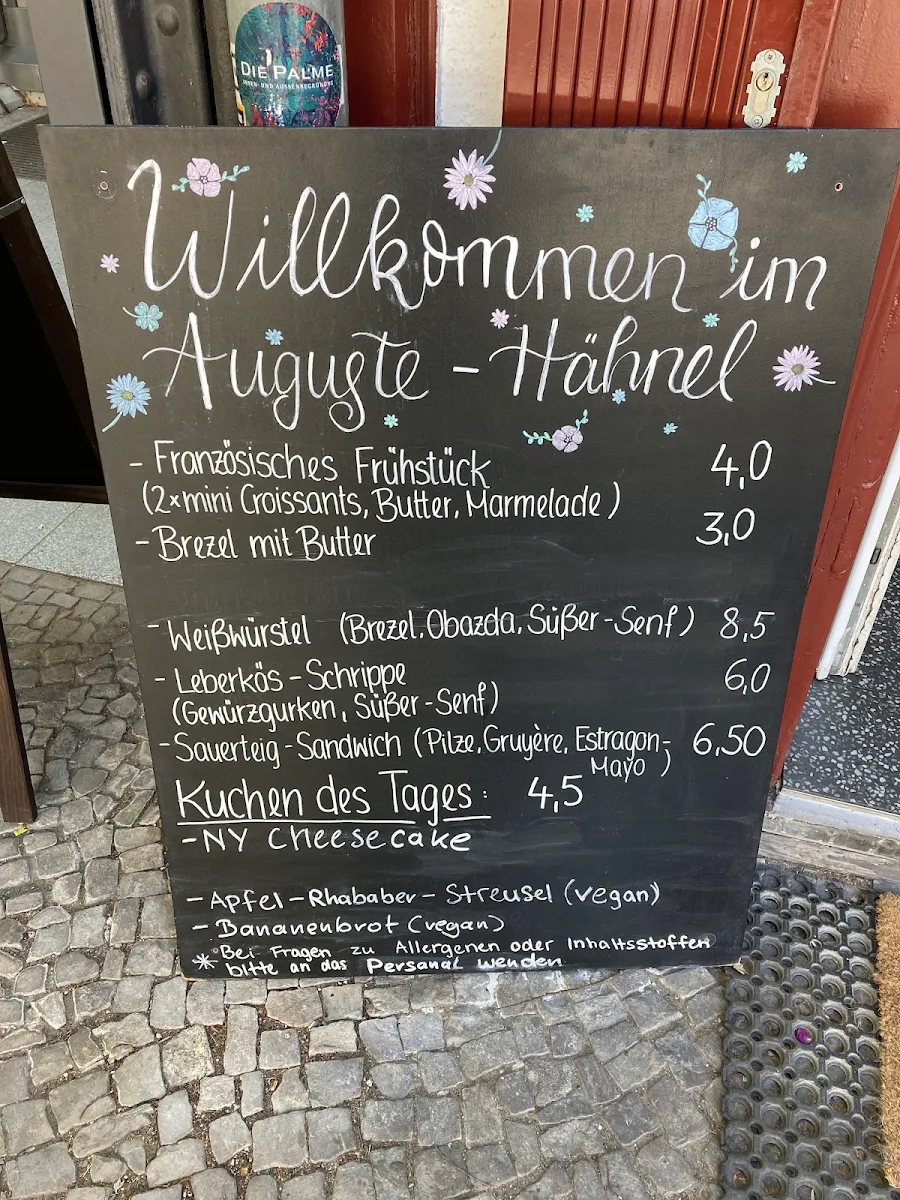 DIE PALME
INNEN- UND AUSSENBEGRÜNUNG
Willkommen im
Auguste - Hähnel
- Französisches Frühstück 4,0
(2x mini Croissants, Butter, Marmelade)
- Brezel mit Butter 3,0
- Weißwürstel (Brezel, Obazda, Süßer-Senf) 8,5
- Leberkäs - Schrippe 6,0
(Gewürzgurken, Süßer-Senf)
- Sauerteig - Sandwich (Pilze, Gruyère, Estragon- 6,50
Mayo)
Kuchen des Tages: 4,5
- NY Cheesecake
- Apfel - Rhababer - Streusel (vegan)
- Bananenbrot (vegan)
* °Bei Fragen zu Allergenen oder Inhaltsstoffen
bitte an das Personal wenden